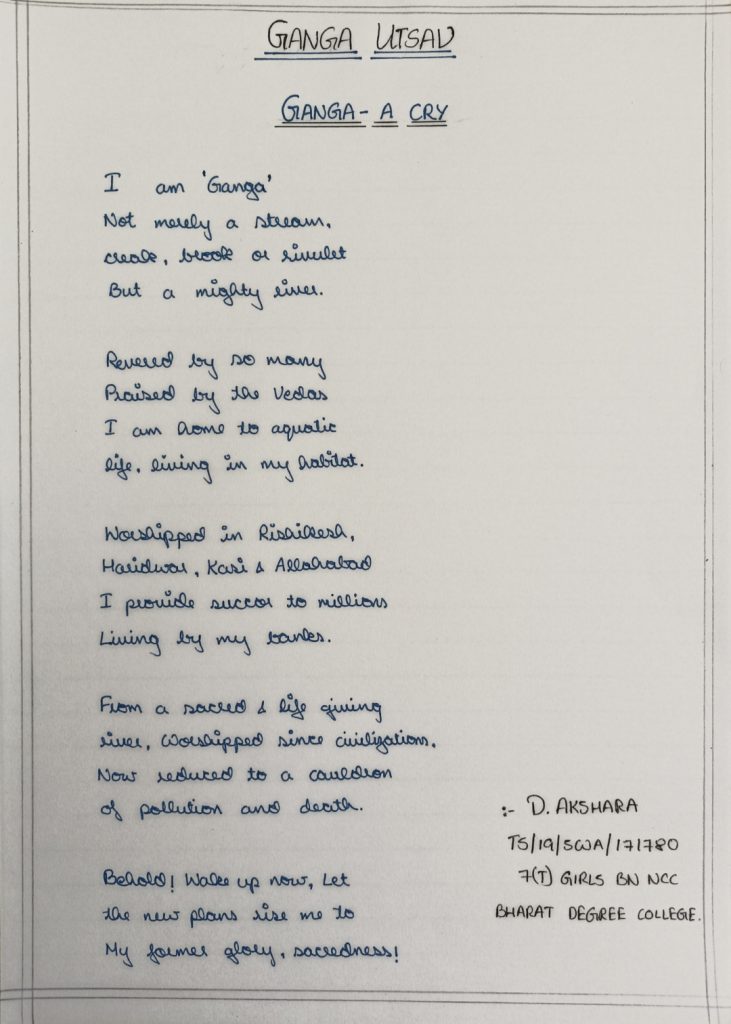 GANGA UTSAV
GANGA - A CRY
I am 'Ganga'
Not merely a stream,
creak, brook or rivulet
But a mighty river.
Revered by so many
Praised by the Vedas
I am home to aquatic
life, living in my habitat.
Worshipped in Rishikesh,
Haridwar, Kasi & Allahabad
I provide succor to millions
Living by my banks.
From a sacred & life giving
river, Worshipped since civilizations,
Now reduced to a cauldron
of pollution and death.
Behold! Wake up now, Let
the new plans rise me to
My former glory, sacredness!
:- D. AKSHARA
TS/19/SWA/171780
7(T) GIRLS BN NCC
BHARAT DEGREE COLLEGE.